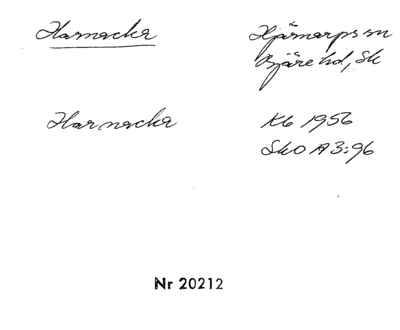 Harnacka
Hjärnarps sn
Bjäre hd, Sk
Harnacka
Kb 1956
SkO A3:96
Nr 20212